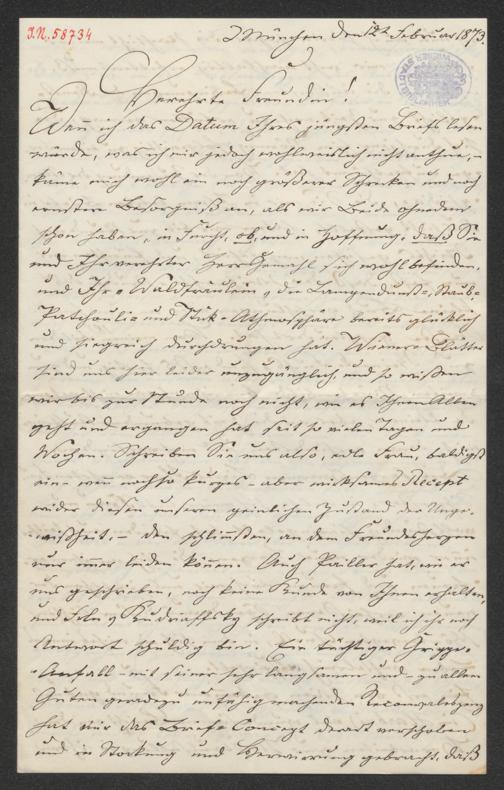 I.N. 58734
München den 12t Februar 1873.
Verehrte Freundin!
Wenn ich das Datum Ihres jüngsten Briefs lesen
würde, was ich mir jedoch wohlweislich nicht anthue, –
käme mich wohl ein noch größerer Schrecken und noch
ernstere Besorgniß an, als wir Beide ohnedem
schon haben, in Furcht, ob, und in Hoffnung, daß Sie
und Ihr verehrter Herr Gemahl sich wohl befinden,
und Ihr „Waldfräulein“ die Lampendunst-, Staub-
Patchouli- und Stick-Athmosphäre bereits glücklich
und siegreich durchdrungen hat. Wiener-Blätter
sind uns hier leider unzugänglich, und so wissen
wir bis zur Stunde noch nicht, wie es Ihnen Allen
geht und ergangen hat seit so vielen Tagen und
Wochen. Schreiben Sie uns also, edle Frau, baldigst
ein – wenn noch so kurzes – aber wirksames Recept
wider diesen unseren peinlichen Zustand der Unge-
wißheit, – den schlimmsten, an dem Freundesherzen
nur immer leiden können. Auch Pailler hat, wie er
uns geschrieben, noch keine Kunde von Ihnen erhalten,
und Frln v Rudzaffsky schreibt nicht, weil ich ihr noch
Antwort schuldig bin. Ein tüchtiger Grippe-
-Anfall – mit seiner sehr langsamen und – zu allem
Guten geradezu unfähig machenden Reconvaleszenz
hat mir das Brief-Concept derart verschoben
und in Stockung und Verwirrung gebracht, daß